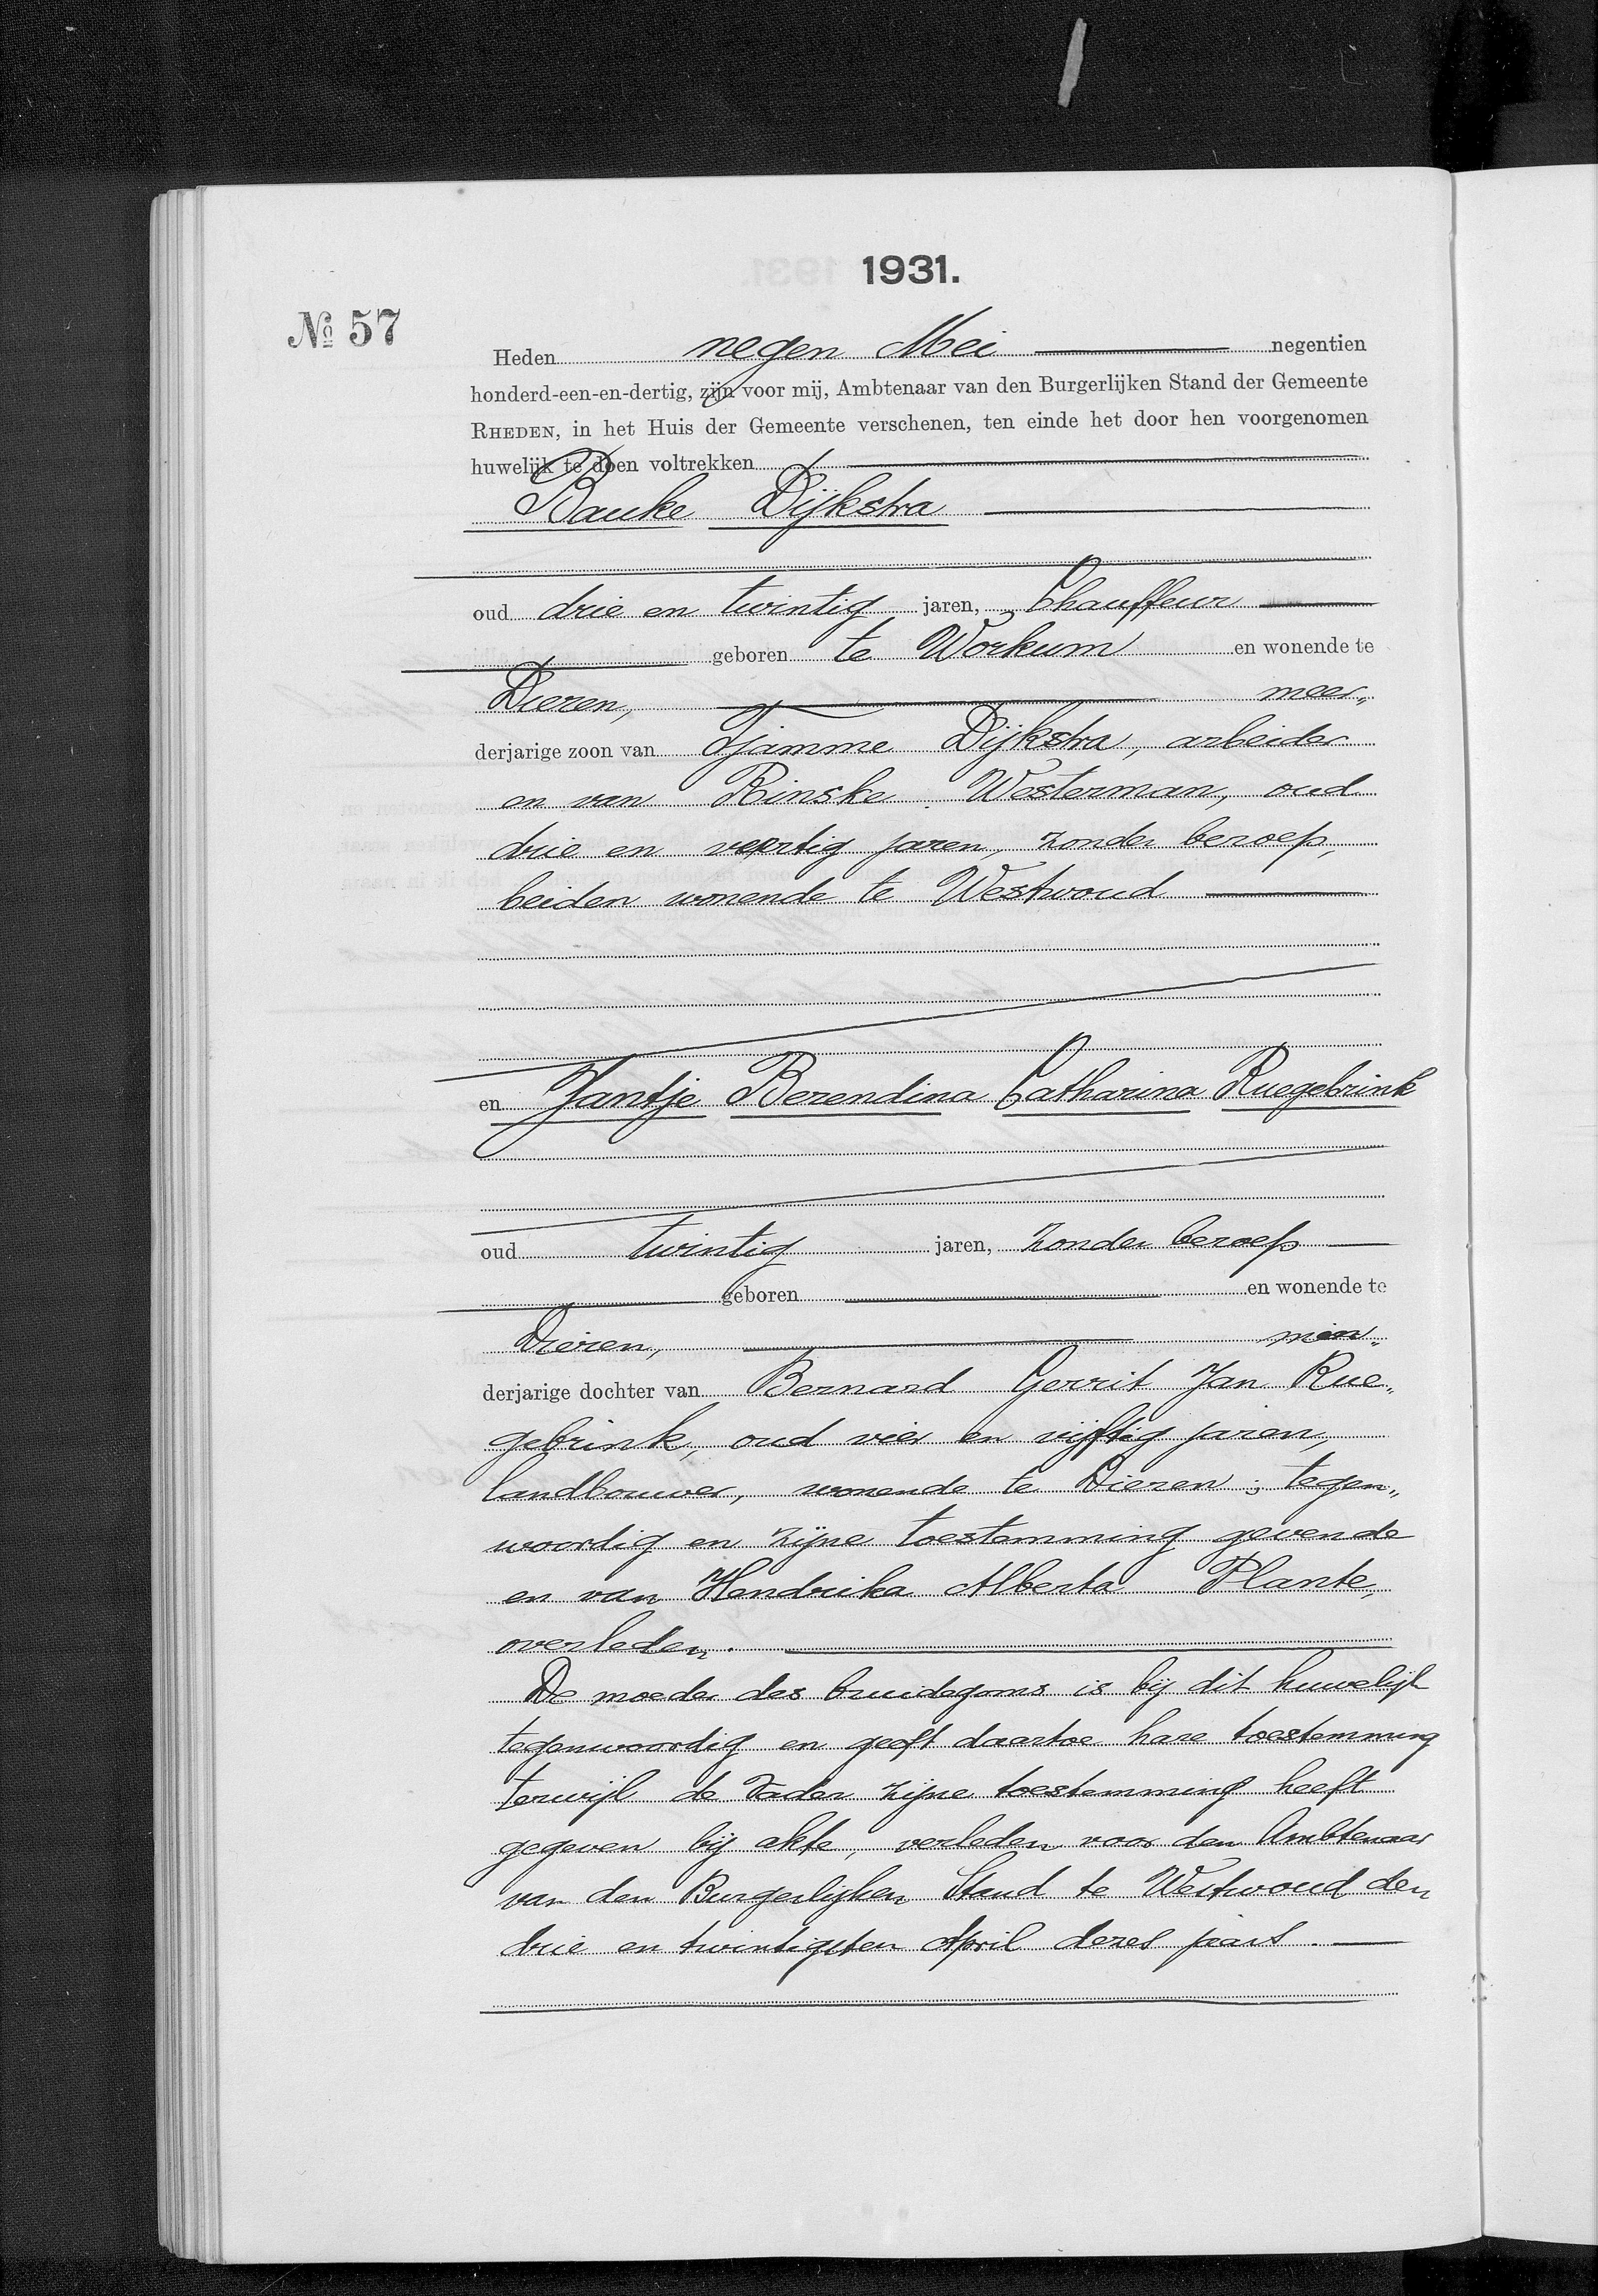 1931.
№ 57
Heden negen Mei negentien
honderd-een-en-dertig, zijn voor mij, Ambtenaar van den Burgerlijken Stand der Gemeente
RHEDEN, in het Huis der Gemeente verschenen, ten einde het door hen voorgenomen
huwelijk te doen voltrekken
Bauke Dijkstra
oud drie en twintig jaren, Chauffeur
geboren te Workum en wonende te
Dieren, meer„
derjarige zoon van Tjamme Dijkstra, arbeider
en van Rinske Westerman, oud
drie en veertig jaren, zonder beroep,
beiden wonende te Westwoud
en Jantje Berendina Catharina Ruegebrink
oud twintig jaren, zonder beroep
geboren en wonende te
Dieren, min„
derjarige dochter van Bernard Gerrit Jan Rue„
gebrink, oud vier en vijftig jaren,
landbouwer, wonende te Dieren; tegen„
woordig en zijne toestemming gevende
en van Hendrika Alberta Plante,
overleden.
De moeder des bruidegoms is bij dit huwelijk
tegenwoordig en geeft daartoe hare toestemming
terwijl de vader zijne toestemming heeft
gegeven bij akte, verleden voor den Ambtenaar
van den Burgerlijken Stand te Westwoud den
drie en twintigsten April dezes jaars.